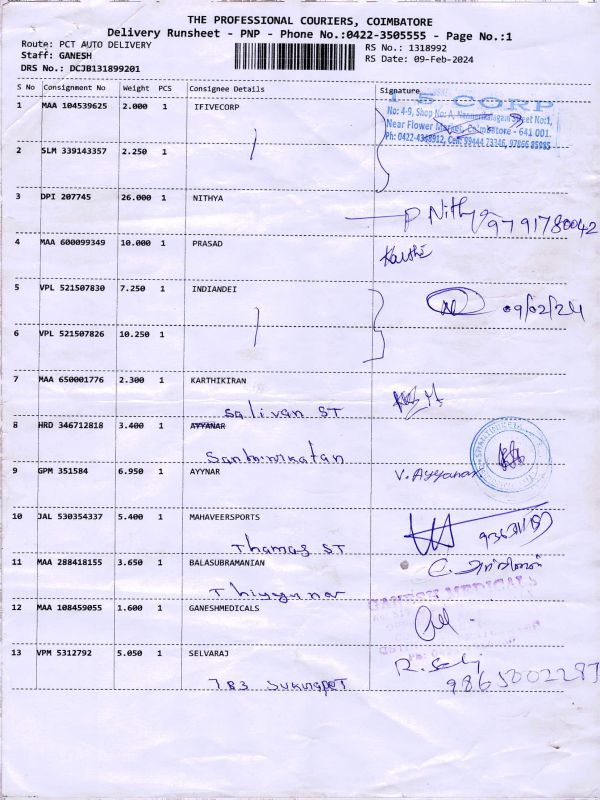 THE PROFESSIONAL COURIERS, COIMBATORE
Delivery Runsheet - PNP - Phone No.:0422-3505555 - Page No.:1
Route: PCT AUTO DELIVERY RS No.: 1318992
Staff: GANESH RS Date: 09-Feb-2024
DRS No.: DCJB131899201
S No Consignment No Weight PCS Consignee Details Signature
1 MAA 104539625 2.000 1 IFIVECORP
I 5 CORP
No: 4-9, Shop No: A, Street No:1,
Near Flower Market, Coimbatore - 641 001.
Ph: 0422-4318912, Cell: 99444 73346, 97866 85085
2 SLM 339143357 2.250 1
3 DPI 207745 26.000 1 NITHYA P Nithya 9791780042
4 MAA 600099349 10.000 1 PRASAD Karthi
5 VPL 521507830 7.250 1 INDIANDEI 09/02/24
6 VPL 521507826 10.250 1
7 MAA 650001776 2.300 1 KARTHIKIRAN
Salivan ST
8 HRD 346712818 3.400 1 AYYANAR
9 GPM 351584 6.950 1 AYYNAR V. Ayyanar
10 JAL 530354337 5.400 1 MAHAVEERSPORTS
Thamas ST
11 MAA 288418155 3.650 1 BALASUBRAMANIAN
GANESH MEDICALS
12 MAA 108459055 1.600 1 GANESHMEDICALS
13 VPM 5312792 5.050 1 SELVARAJ
783